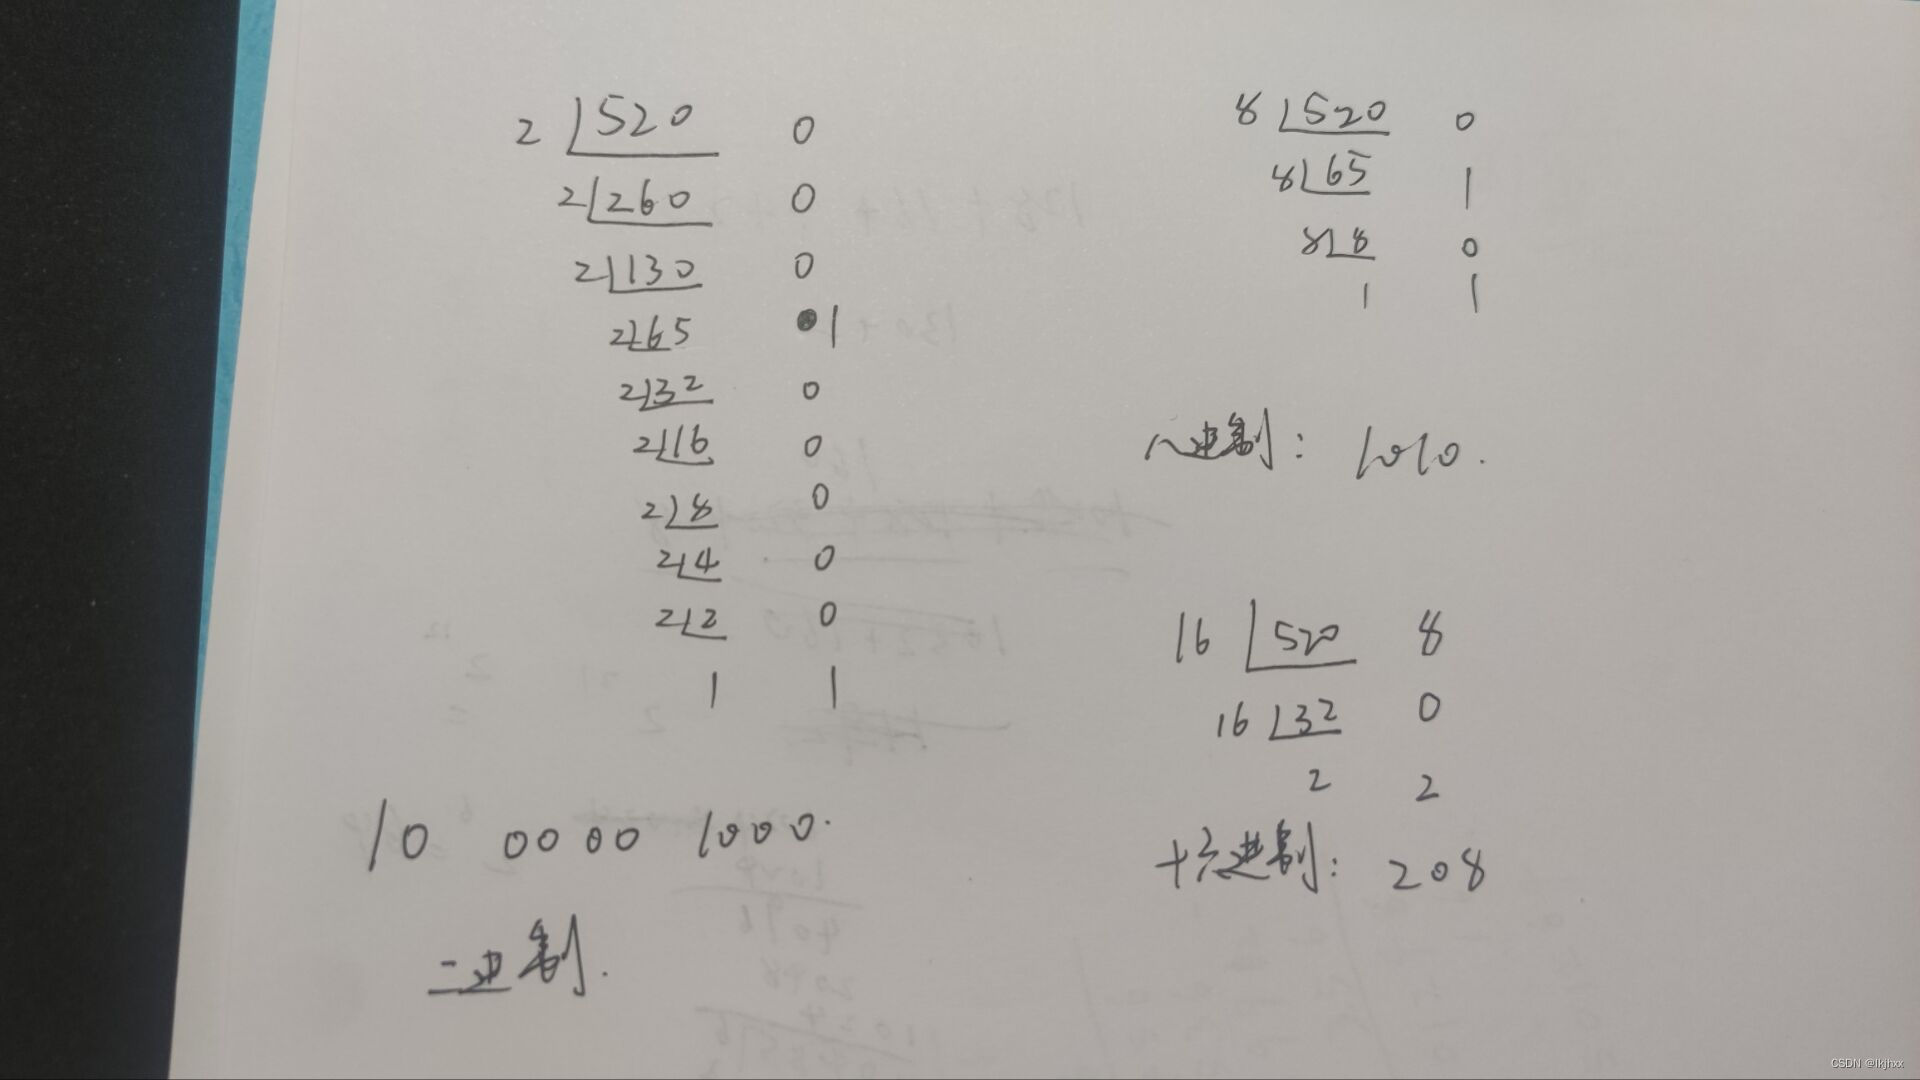 2 520 0
2 260 0
2 130 0
2 65 1
2 32 0
2 16 0
2 8 0
2 4 0
2 2 0
1 1
10 0000 1000.
二进制.
8 520 0
8 65 1
8 8 0
1 1
八进制: 1010.
16 520 8
16 32 0
2 2
十六进制: 208
CSDN @lkjhxx